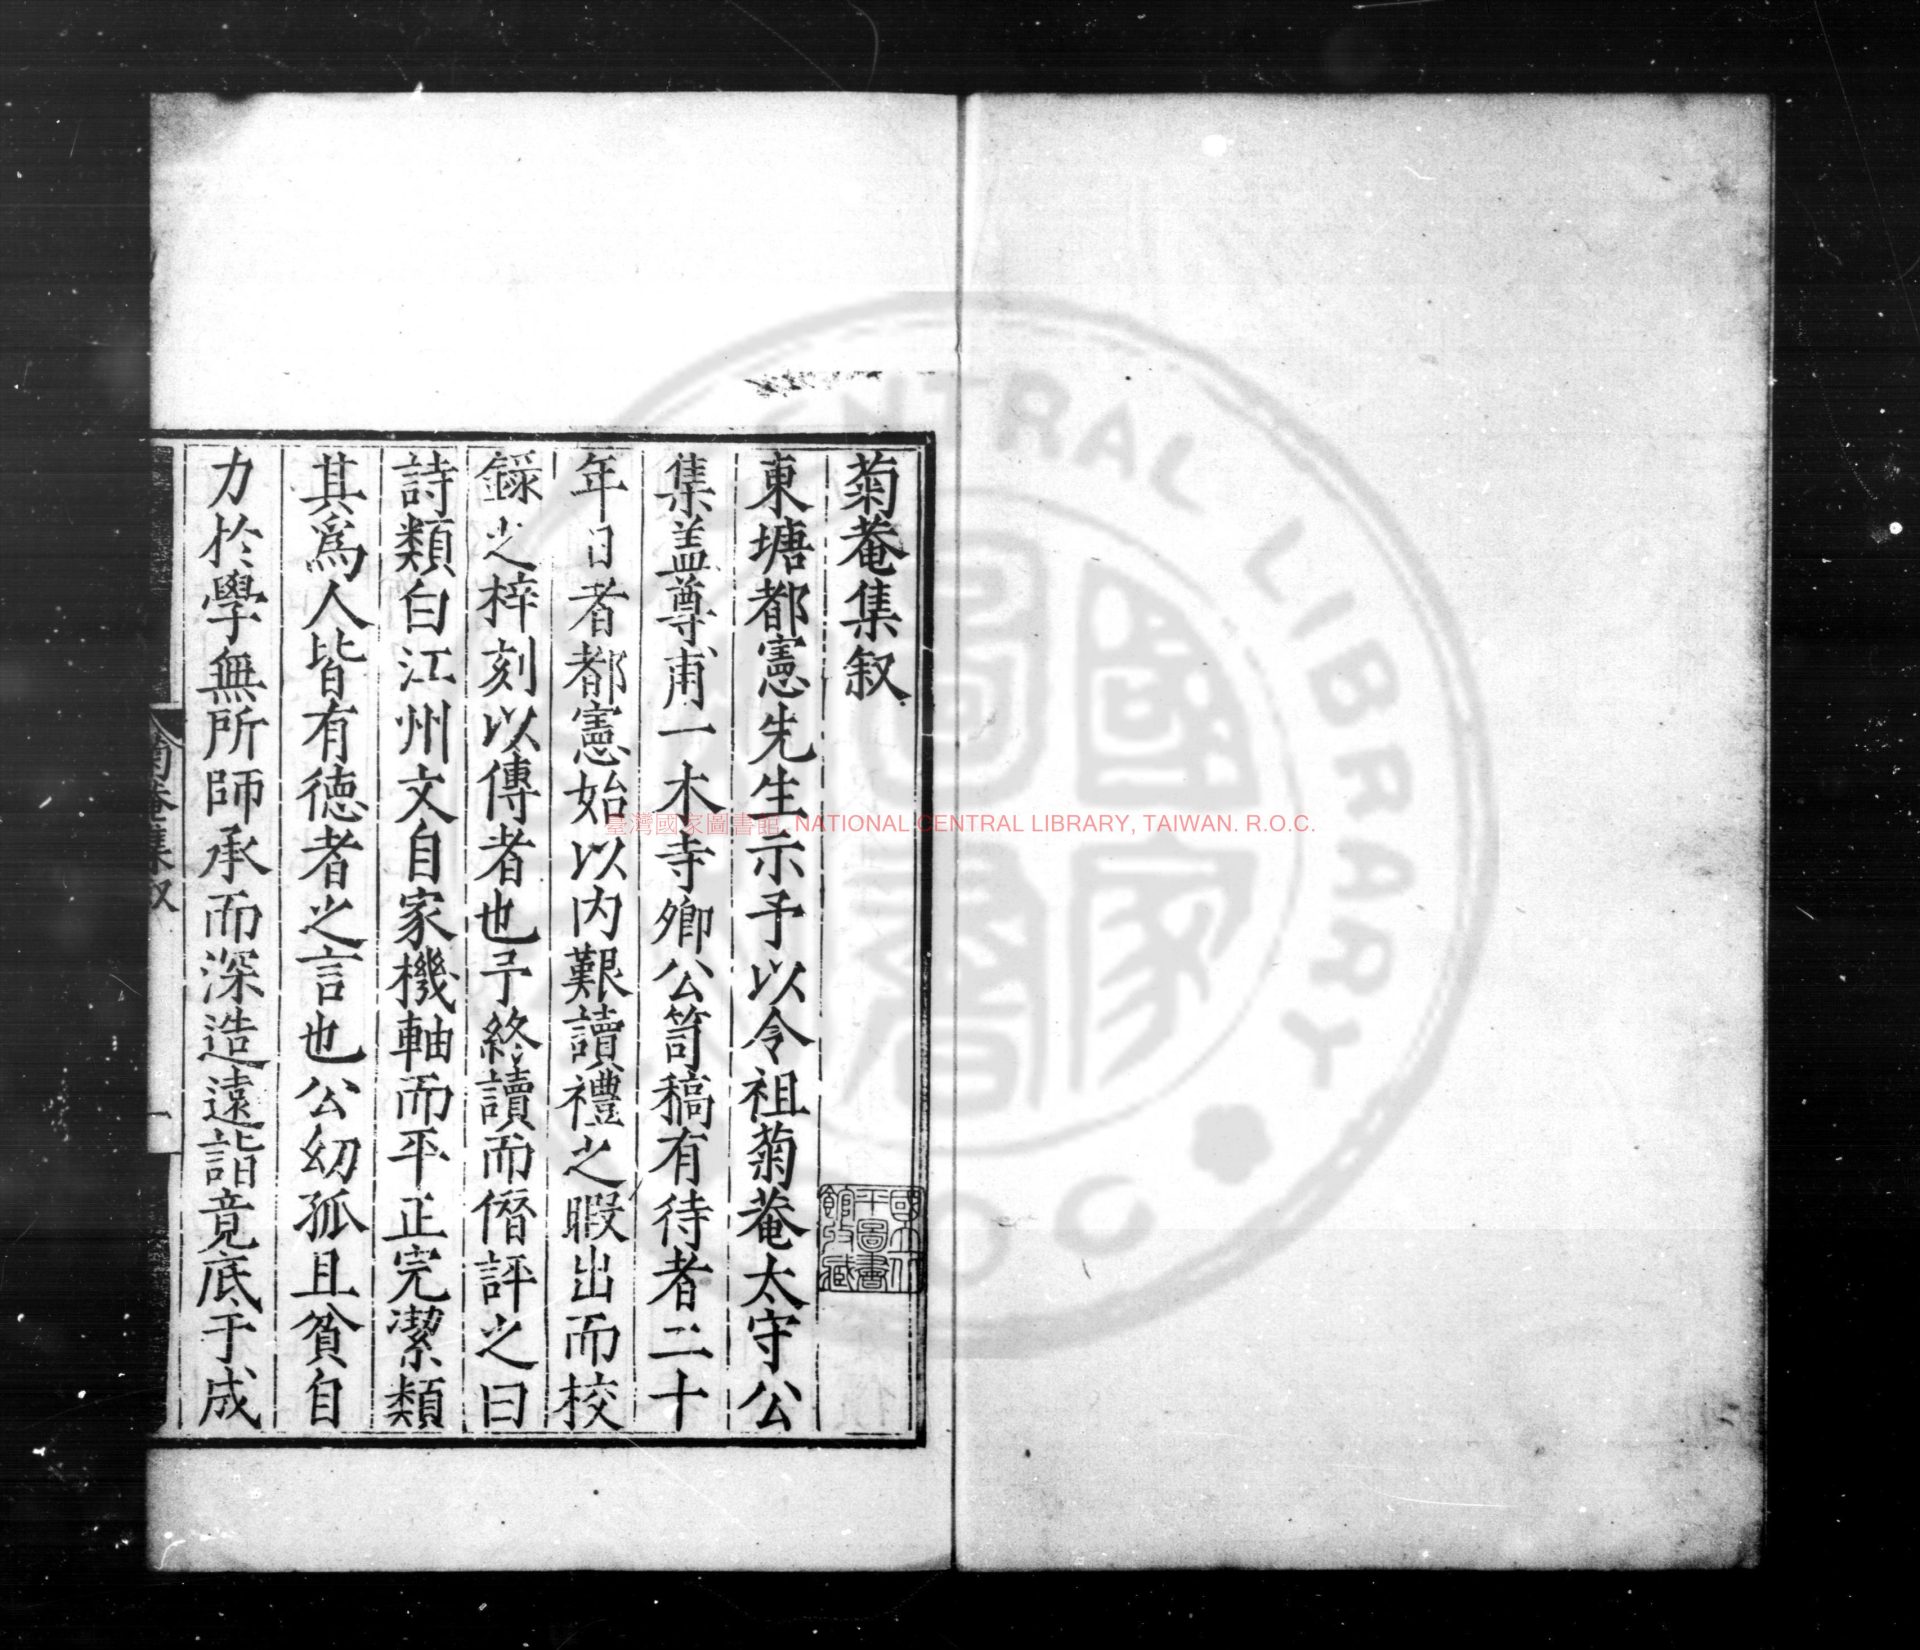 菊菴集叙
東塘都憲先生示予以令祖菊菴太守公
集盖尊甫一木寺卿公笥稿有待者二十
年日者都憲始以内艱讀禮之暇出而校
録之梓刻以傳者也予終讀而僭評之曰
詩類白江州文自家機軸而平正完潔類
其爲人皆有德者之言也公幼孤且貧自
力於學無所師承而深造遠詣竟底于成
菊菴集叙
一
國立北
平圖書
館收藏
臺灣國家圖書館, NATIONAL CENTRAL LIBRARY, TAIWAN. R.O.C.
國家圖書
CENTRAL LIBRARY
R.O.C